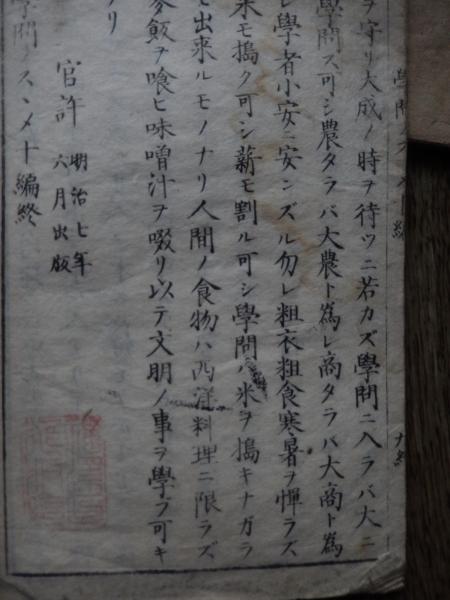 ヲ守リ大成ノ時ヲ待ツニ若カズ學問ニ入ラバ大ニ
學問ス可シ農タラバ大農ト爲レ商タラバ大商ト爲
レ學者小安ニ安ンズル勿レ粗衣粗食寒暑ヲ憚ラズ
米モ搗ク可シ薪モ割ル可シ學問ハ米ヲ搗キナガラ
モ出来ルモノナリ人間ノ食物ハ西洋料理ニ限ラズ
麥飯ヲ喰ヒ味噌汁ヲ啜リ以テ文明ノ事ヲ學ブ可キ
ナリ
官許 明治七年
六月出版
學問ノスヽメ十編終